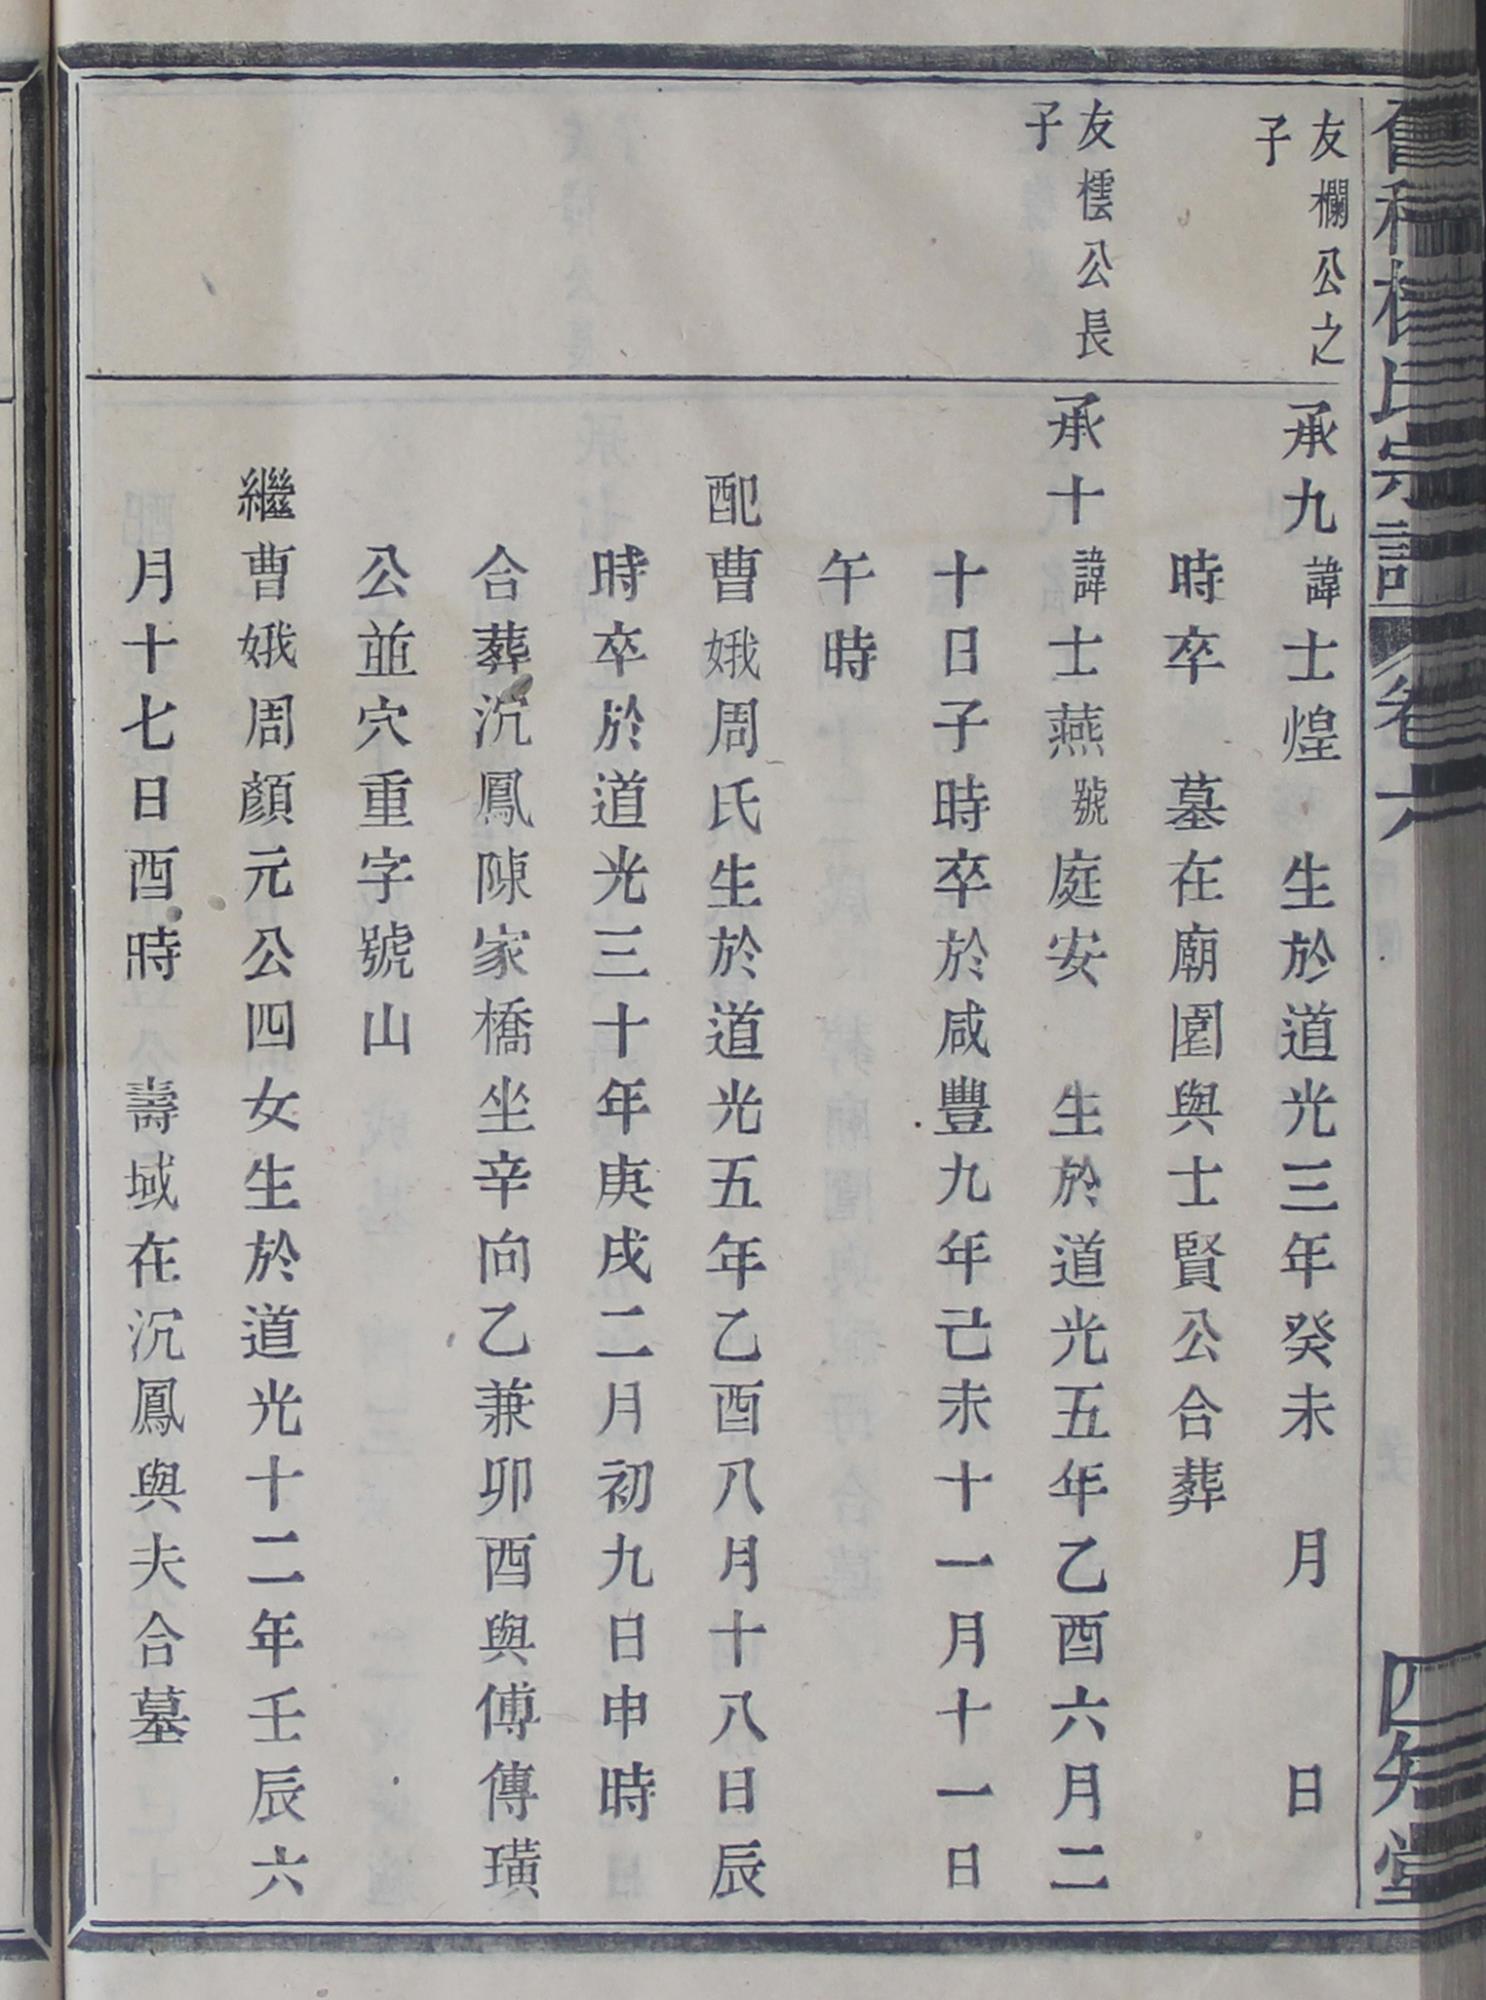 氏宗譜 卷六 四知堂
友欄公之
子
承九諱士煌 生於道光三年癸未 月 日
時卒 墓在廟園與士賢公合葬
友橒公長
子
承十諱士燕號庭安 生於道光五年乙酉六月二
十日子時卒於咸豐九年己未十一月十一日
午時
配曹娥周氏生於道光五年乙酉八月十八日辰
時卒於道光三十年庚戌二月初九日申時
合葬沉鳳陳家橋坐辛向乙兼卯酉與傅傳璜
公並穴重字號山
繼曹娥周顏元公四女生於道光十二年壬辰六
月十七日酉時 壽域在沉鳳與夫合墓